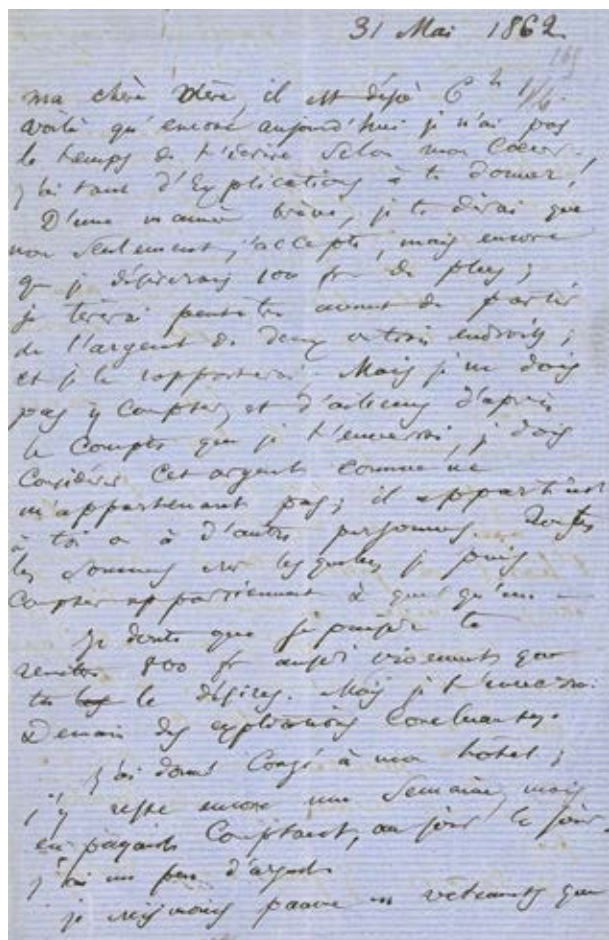 31 Mai 1862.
169
ma chère Mère, il est déjà 6 h 1/2.
voilà qu'encore aujourd'hui je n'ai pas
le temps de t'écrire selon mon Coeur.
j'ai tant d'Explications à te donner!
D'une manière brève, je te dirai que
non seulement j'accepte, mais encore
que je désirerais 100 fr de plus;
je peut-être avant de partir
de l'argent de deux ou trois endroits;
et je le rapporterai. Mais je ne dois
pas y compter, et d'ailleurs d'après
le Compte que je t'enverrai, je dois
Considérer cet argent comme ne
m'appartenant pas; il appartient
à toi ou à d'autres personnes. Toutes
les sommes sur lesquelles je puis
Compter appartiennent à quelqu'un —
Je doute que je puisse te
rendre 800 fr aussi vivement que
tu le désires. Mais je t'enverrai
Demain des explications Concluantes.
J'ai donné Congé à mon hôtel;
j'y reste encore une Semaine, mais
en payant Comptant, au jour le jour.
j'ai un peu d'argent.
je suis moins pauvre en vêtements que